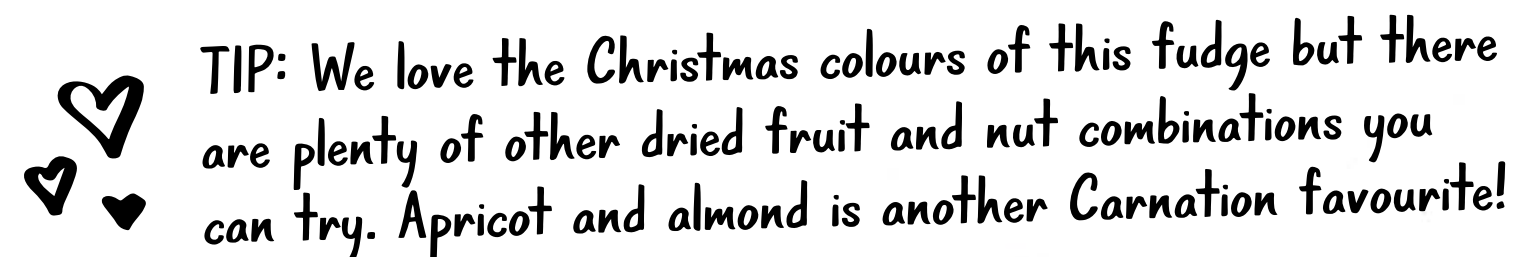 TIP: We love the Christmas colours of this fudge but there
are plenty of other dried fruit and nut combinations you
can try. Apricot and almond is another Carnation favourite!